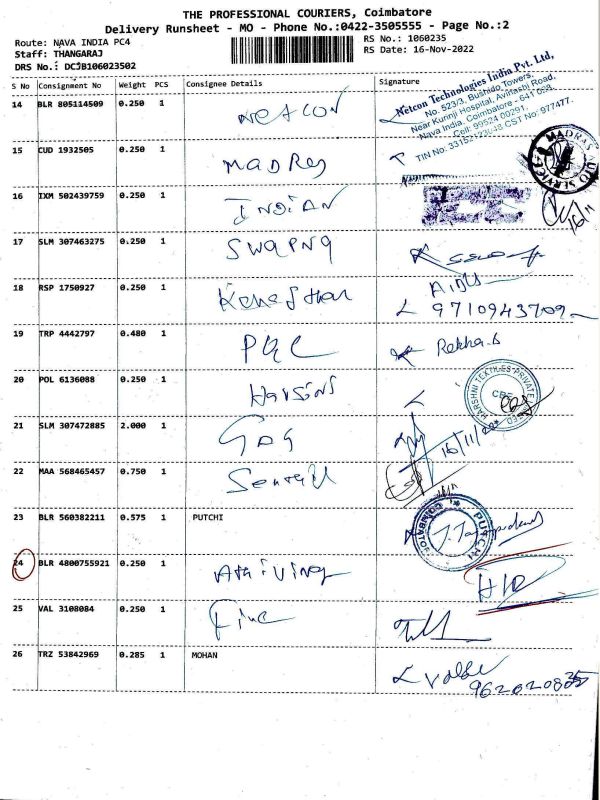 THE PROFESSIONAL COURIERS, Coimbatore
Delivery Runsheet - MO - Phone No.:0422-3505555 - Page No.:2
Route: NAVA INDIA PC4
RS No.: 1060235
Staff: THANGARAJ
RS Date: 16-Nov-2022
DRS No.: DCJB106023502
S No Consignment No Weight PCS Consignee Details Signature
14 BLR 805114509 0.250 1 NETCON
Netcon Technologies India Pvt. Ltd,
No. 523/3, Bushido Towers,
Near Kurinji Hospital, Avinashi Road,
Nava India, Coimbatore - 641 028.
Cell: 99524 00291,
15 CUD 1932505 0.250 1 MADRAS
MADRAS AUTO SERVICE
16 IXM 502439759 0.250 1 INDIAN
16/11
17 SLM 307463275 0.250 1 SWAPNA
18 RSP 1750927 0.250 1
9710943709
19 TRP 4442797 0.480 1 Rekha.S
20 POL 6136088 0.250 1
HARSHNI TEXTILES PRIVATE LIMITED
CBE
21 SLM 307472885 2.000 1
16/11/22
22 MAA 568465457 0.750 1
23 BLR 560382211 0.575 1 PUTCHI
PUTCHI COIMBATORE
24 BLR 4800755921 0.250 1
25 VAL 3108084 0.250 1 Fine
26 TRZ 53842969 0.285 1 MOHAN